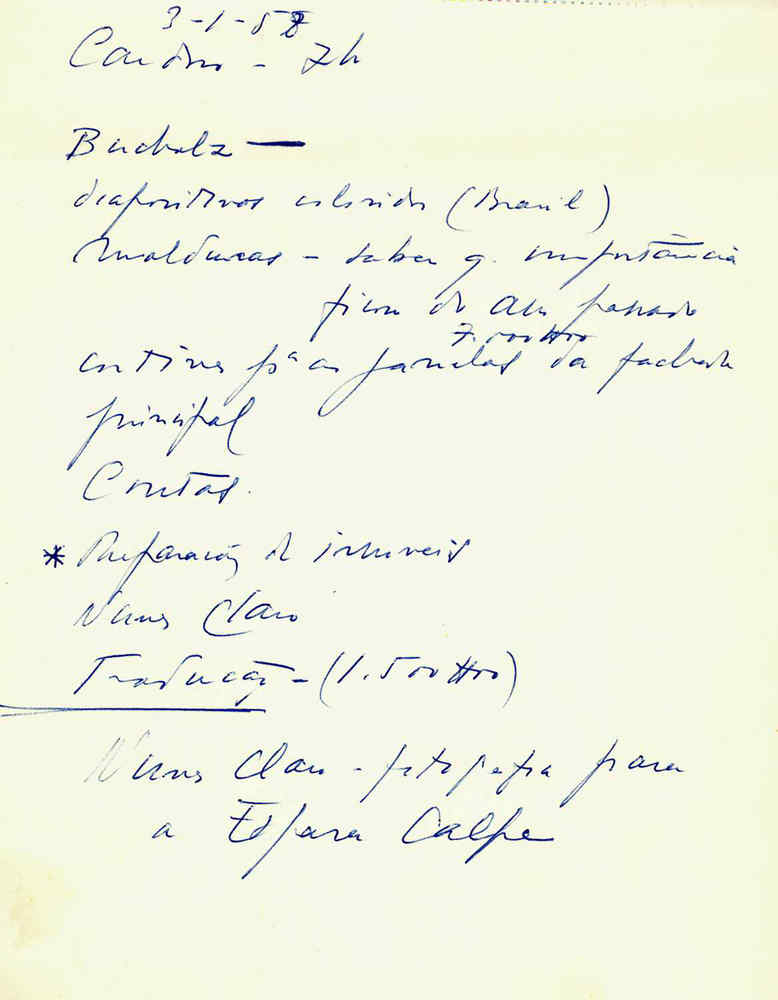 3-1-58
Cardoso - 7h
Bucholz —
diapositivos coloridos (Brasil)
Molduras - saber q. importância
ficou do ano passado
7.000$00
cortinas pª as janelas da fachada
principal
Contas.
* Preparação de imoveis
Nunes Claro
Tradução - (1.500$00)
Nunes Claro - fotografia para
a Espasa Calpe